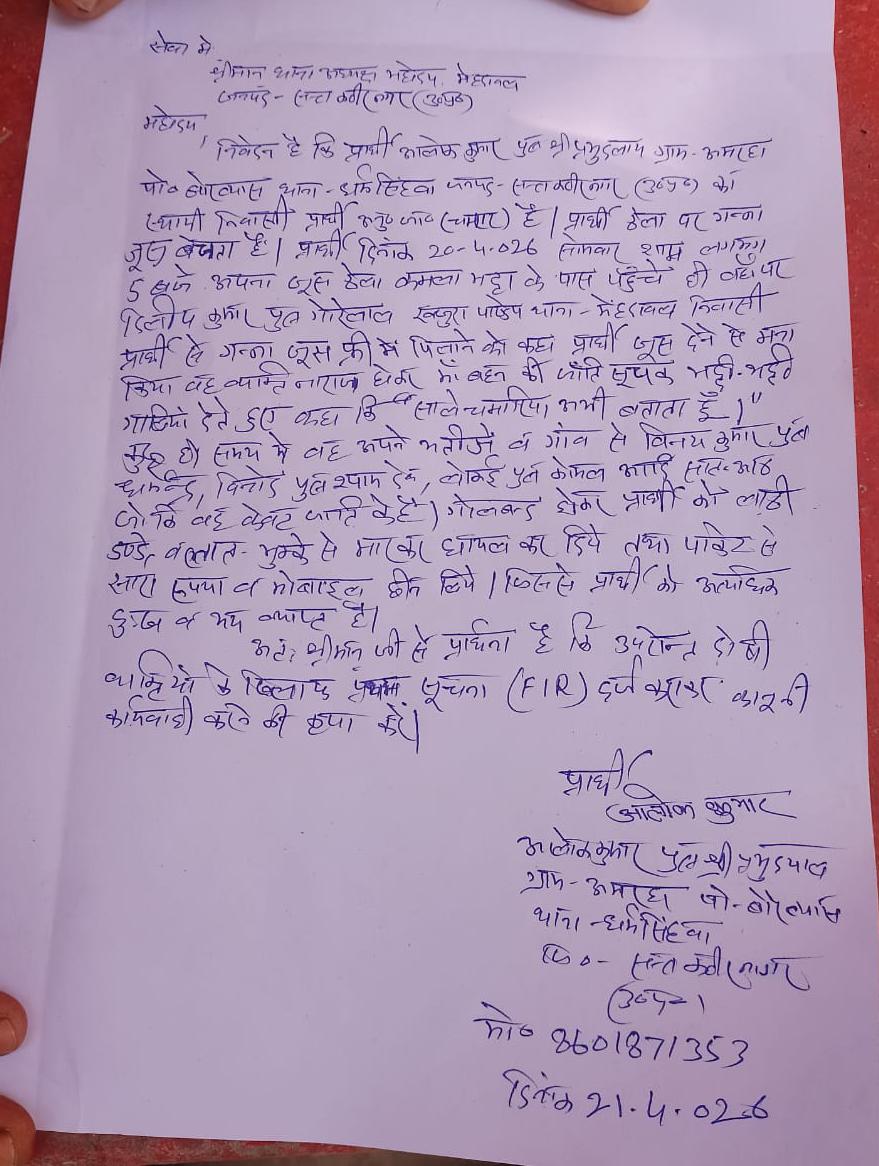 सेवा में
श्रीमान थाना अध्यक्ष महोदय, मेहदावल
जनपद - सन्त कबीर नगर (उ०प्र०)
महोदय,
निवेदन है कि प्रार्थी आलोक कुमार पुत्र श्री प्रभुदयाल ग्राम - अमरहा
पो० थाना - धर्मसिंहवा जनपद - सन्त कबीर नगर (उ०प्र०) का
स्थायी निवासी प्रार्थी अनु० जाति (चमार) है। प्रार्थी ठेला पर गन्ना
जूस बेचता है। प्रार्थी दिनांक 20-4.026 सोमवार शाम लगभग
5 बजे अपना जूस ठेला कमला भट्टा के पास पहुँचे ही वहाँ पर
दिलीप कुमार पुत्र गोरेलाल खजुरा पाण्डेय थाना - मेंहदावल निवासी
प्रार्थी से गन्ना जूस फ्री में पिलाने को कहा प्रार्थी जूस देने से मना
किया वह व्यक्ति नाराज होकर माँ बहन की जाति सूचक भद्दी-भद्दी
गालियां देते हुए कहा कि "साले चमारिया अभी बताता हूँ।"
कुछ ही समय में वह अपने भतीजे व गांव से विनय कुमार पुत्र
धर्मेन्द्र, विनोद पुत्र श्याम देव, पुत्र कोमल आदि सात-आठ
जो कि वह केवट जाति के हैं। गोलबन्द होकर प्रार्थी को लाठी
डण्डे, व लात-मुक्के से मारकर घायल कर दिये तथा पाकेट से
सारा रूपया व मोबाइल छीन लिये। जिससे प्रार्थी को अत्यधिक
दुःख व भय व्याप्त है।
अतः श्रीमान जी से प्रार्थना है कि उपरोक्त दोषी
व्यक्तियों के खिलाफ प्रथम सूचना (FIR) दर्ज कराकर कानूनी
कार्यवाही करने की कृपा करें।
प्रार्थी
आलोक कुमार
आलोक कुमार पुत्र श्री प्रभुदयाल
ग्राम - अमरहा पो -
थाना - धर्मसिंहवा
जि० - सन्त कबीर नगर
(उ०प्र०)
मो० 8601871353
दिनांक 21.4.026